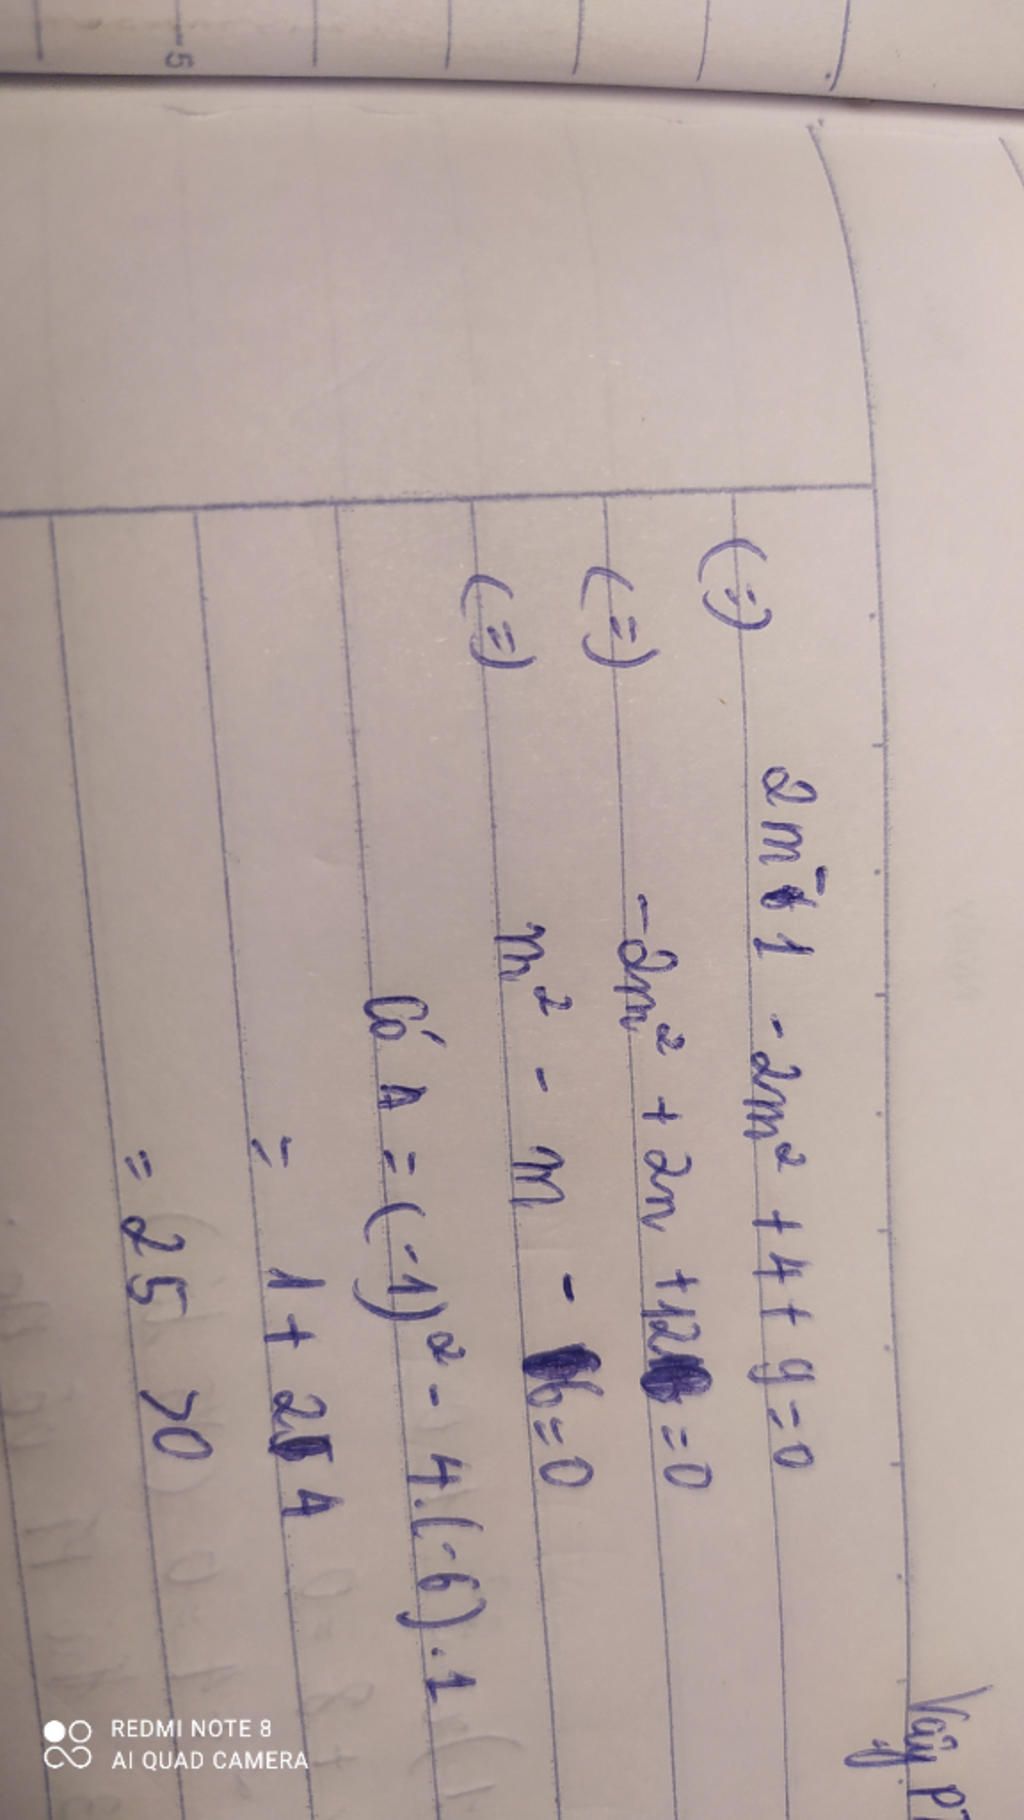 Vậy
(=) 2m - 1 - 2m² + 4 + 9 = 0
(=) -2m² + 2m + 12 = 0
(=) m² - m - 6 = 0
Có Δ = (-1)² - 4.(-6).1
= 1 + 24
= 25 > 0
5
REDMI NOTE 8
AI QUAD CAMERA